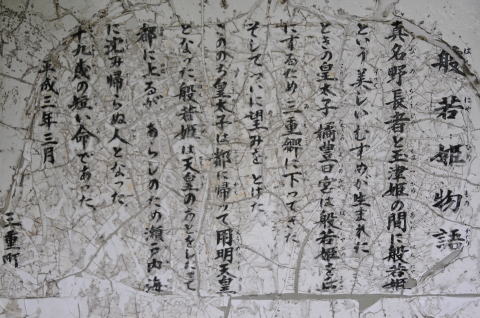 般若姫物語
真名野長者と玉津姫の間に般若姫
という美しいむすめが生まれた
ときの皇太子橘豊日宮は般若姫を妃
にするため三重郷に下ってきた
そしてついに望みをとげた
こののち皇太子は都に帰って用明天皇
となった般若姫は天皇のあとをしたって
都に上るが あらしのため瀬戸内海
に沈み帰らぬ人となった
十九歳の短い命であった
平成三年三月
三重町